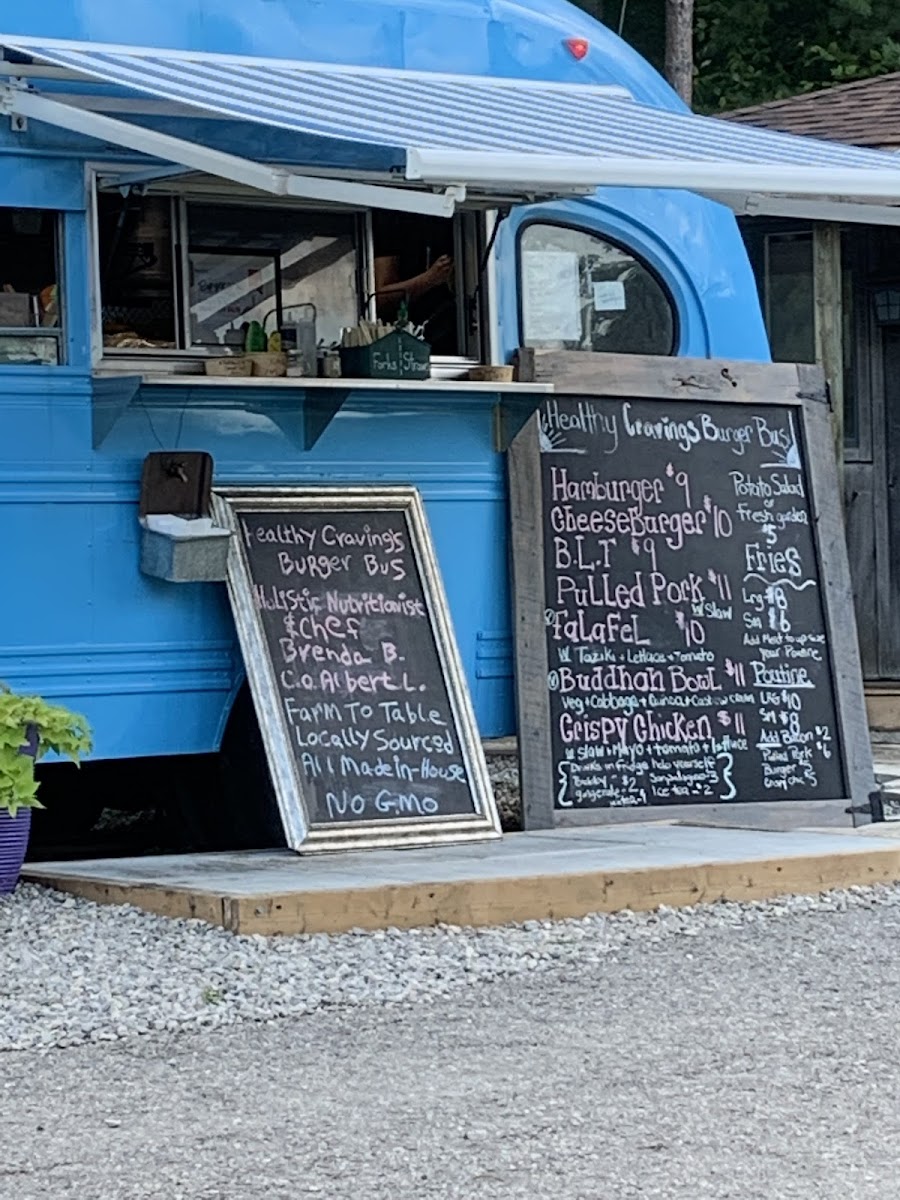 Forks Straws
Healthy Cravings
Burger Bus
Holistic Nutritionist
& Chef
Brenda B.
C.o. Albert L.
Farm To Table
Locally Sourced
All Made in-House
No GMO
Healthy Cravings Burger Bus
Hamburger $9
CheeseBurger $10
B.L.T $9
Pulled Pork $11
W Slaw
FaLaFeL $10
W. Taziki + Lettuce + Tomato
Buddhan Bowl $11
Veg + Cabbage + Quinoa + Cashew cream
Crispy Chicken $11
w Slaw + Mayo + tomato + lettuce
Drinks in Fridge help yourself
$2
gingerale
Ice tea - $2
Potato Salad
or
Fresh garden
$5
Fries
Lrg $8
Sm $6
Add Meat to up size
your Poutine
Poutine
LRG $10
Sm $8
Add Bacon $2
Pulled Pork $6
Burger $5